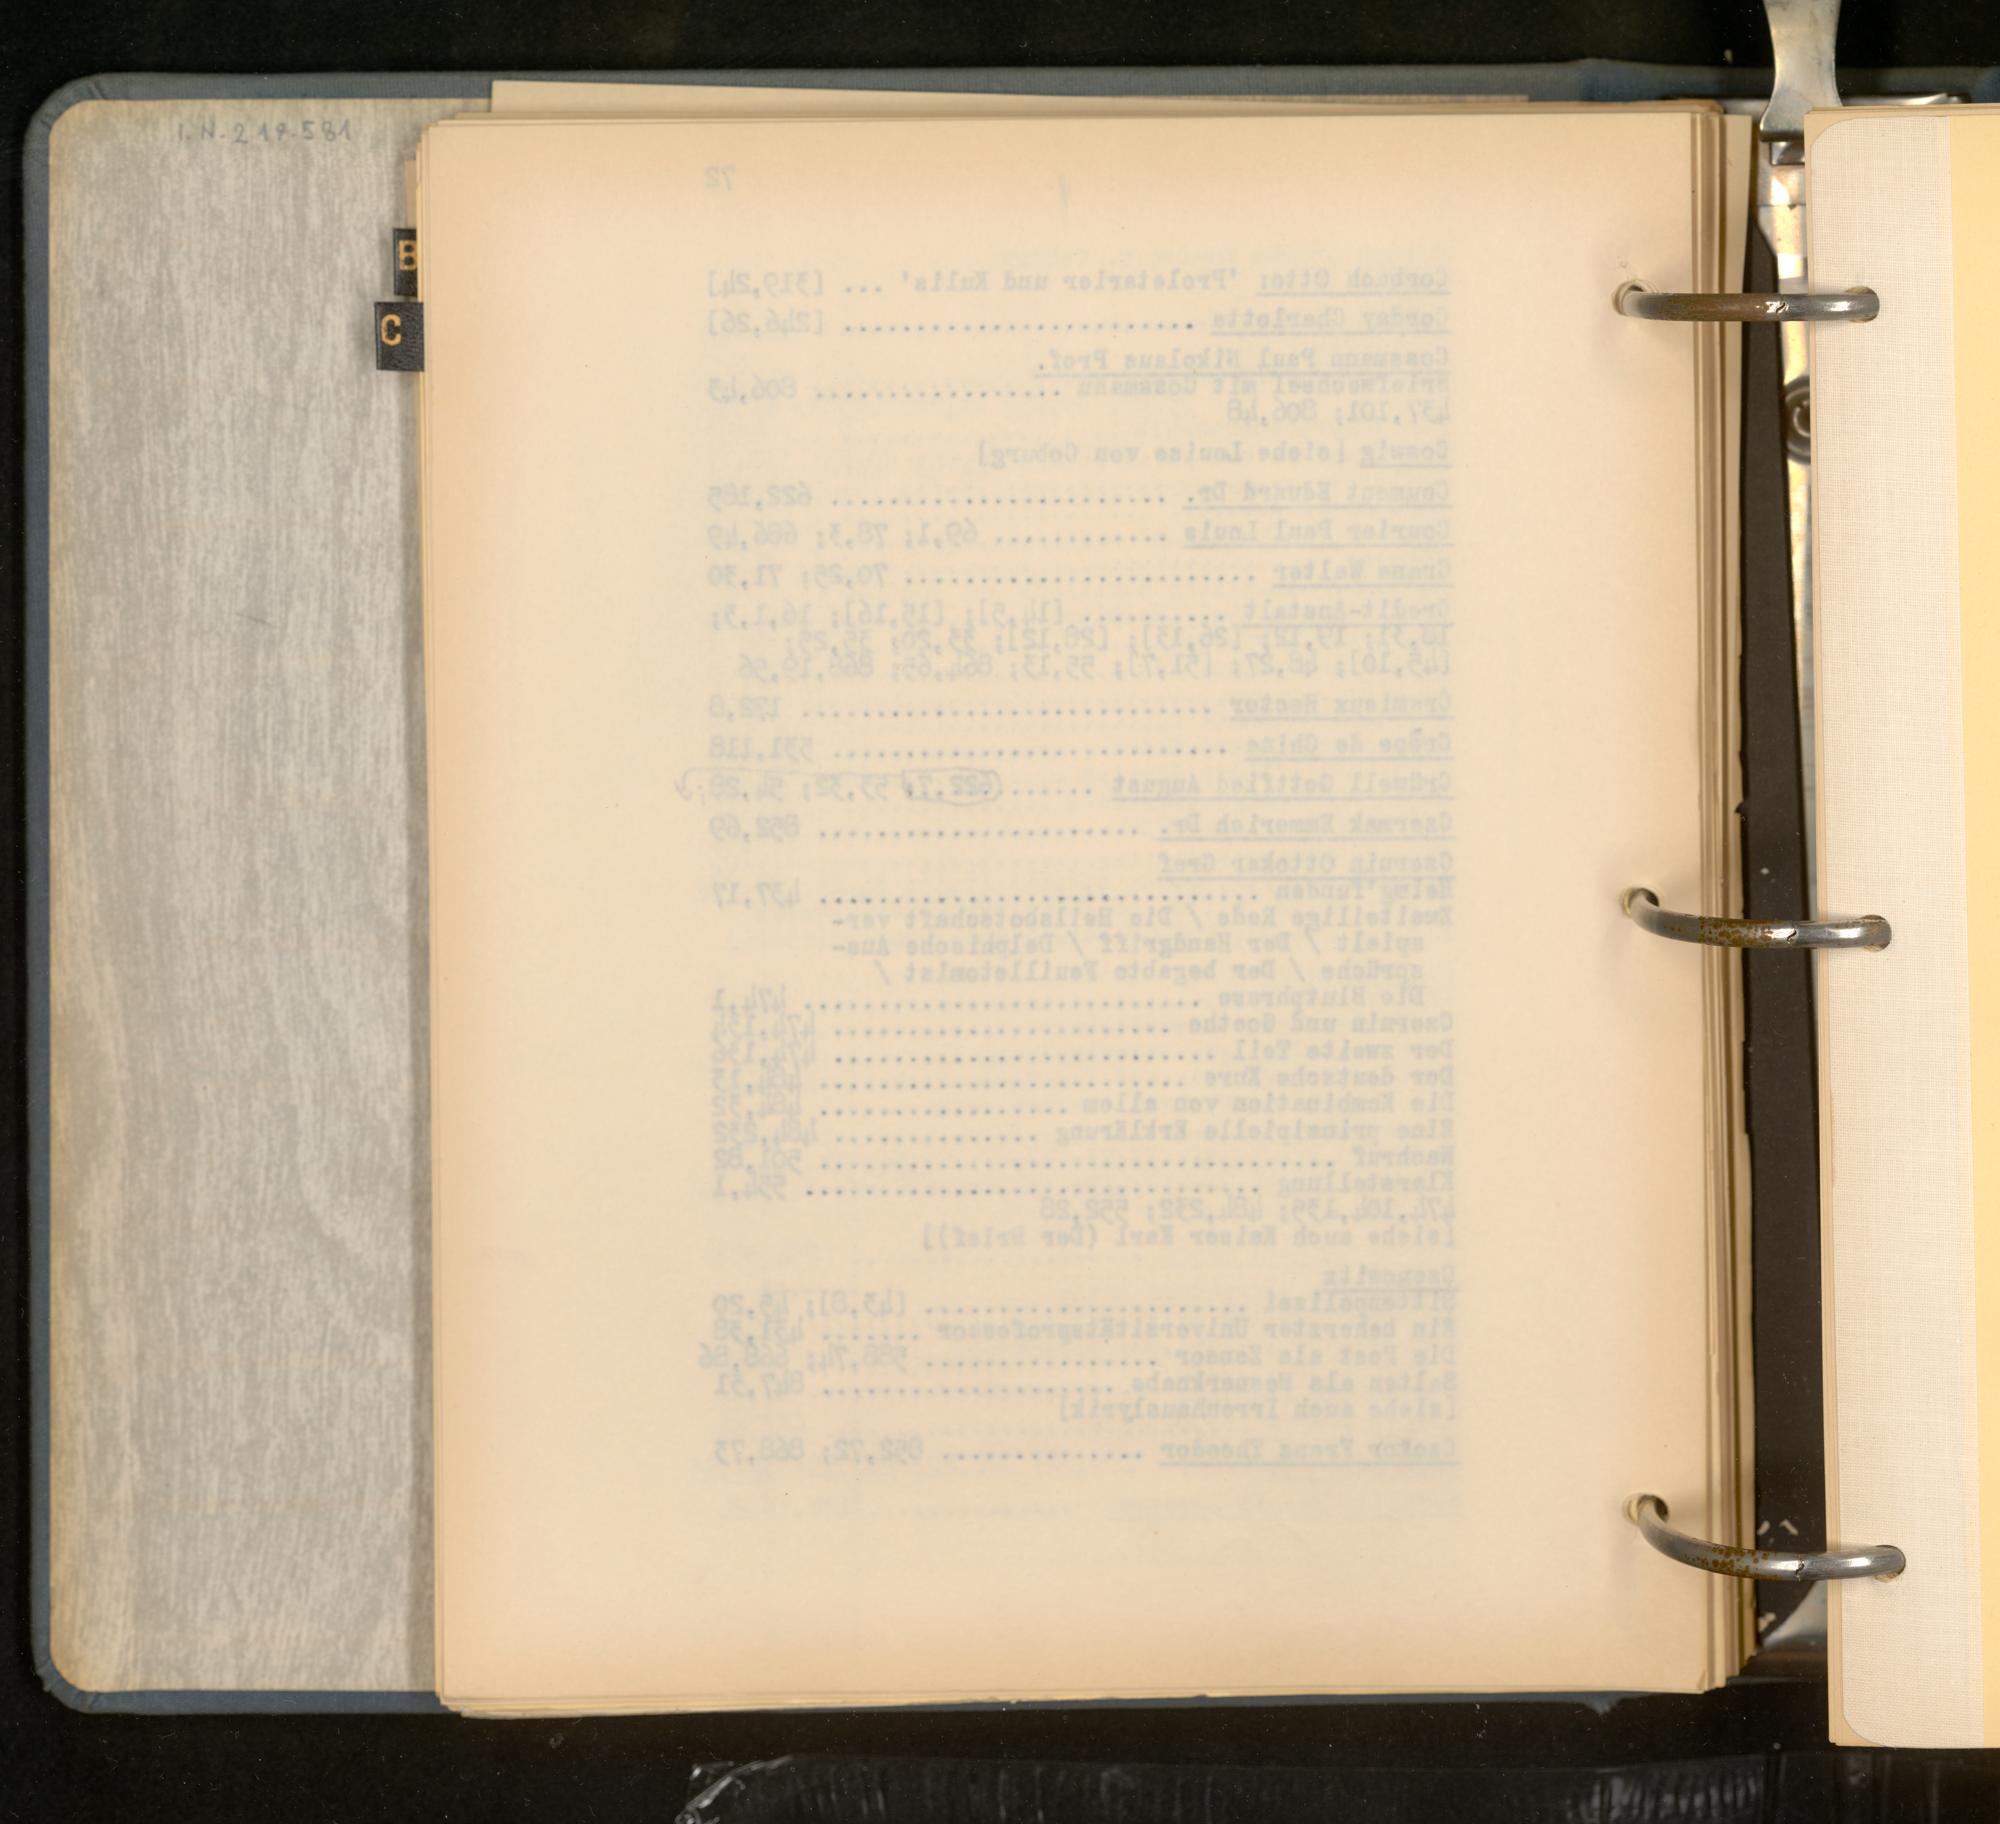 I.N. 219.581
B
C
72
Corbach Otto: 'Proletarier und Kulis' ... [319,24]
Corday Charlotte ........................ [246,26]
Cossmann Paul Nikolaus Prof.
Briefwechsel mit Cossmann ................. 806,43
437,101; 806,48
Coswig [siehe Louise von Coburg]
Coumont Eduard Dr. ....................... 622,185
Courier Paul Louis ............ 69,1; 78,3; 686,49
Crane Walter ........................ 70,25; 71,30
Credit-Anstalt .......... [14,5]; [15,16]; 16,1,3;
18,3]; 19,12; [26,13]; [28,12]; 33,20; 35,25;
[45,10]; 48,27; [51,7]; 55,13; 864,65; 868,19,56
Cremieux Hector ............................ 172,8
Crêpe de Chine ........................... 531,118
Crüwell Gottfied August ...... 622,7; 53,32; 54,28;
Czermak Emmerich Dr. ...................... 852,69
Czernin Ottokar Graf
Helmg'funden .............................. 437,17
Zweiteilige Rede / Die Heilsbotschaft ver-
spielt / Der Handgriff / Delphische Aus-
sprüche / Der begabte Feuilletonist /
Die Blutphrase ........................... 474,1
Czernin und Goethe ....................... 474,134
Der zweite Teil .......................... 474,136
Der deutsche Kurs ......................... 484,13
Die Kombination von allem ................. 484,32
Eine prinzipielle Erklärung .............. 484,232
Nachruf ................................... 501,82
Klarstellung ............................... 554,1
474,104,139; 484,232; 552,28
[siehe auch Kaiser Karl (Der Brief)]
Czernowitz
Sittenpolizei ...................... [43,8]; 45,20
Ein beherzter Universitätsprofessor ....... 431,38
Die Post als Zensor ................ 588,74; 668,86
Salten als Mesnerknabe .................... 847,31
[siehe auch Irrenhauslyrik]
Csokor Franz Theodor .............. 852,72; 868,73